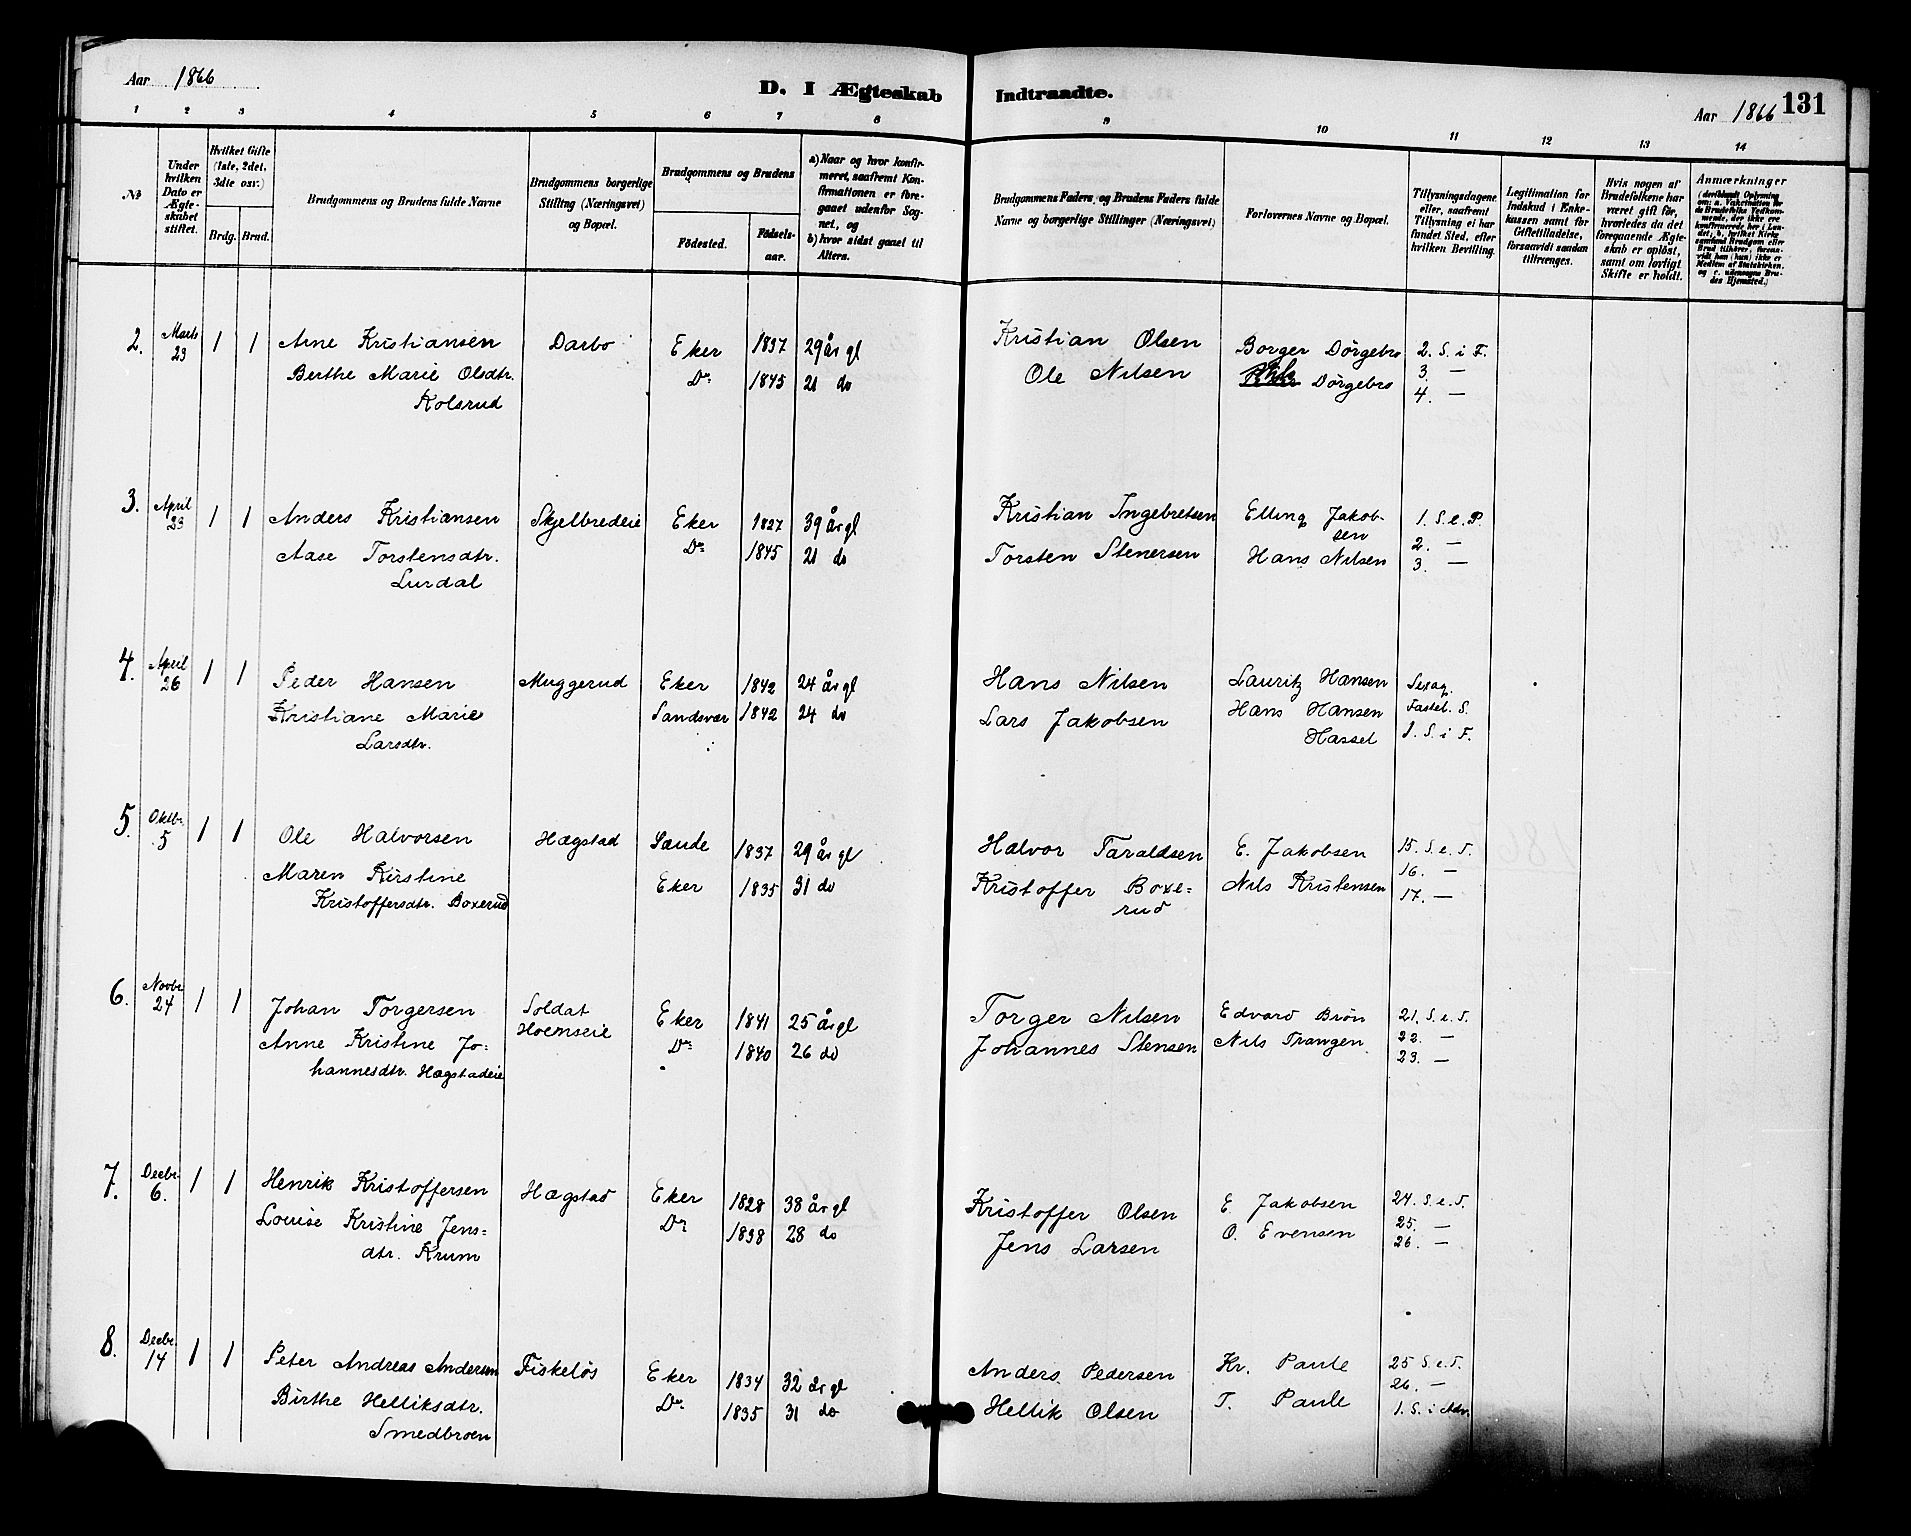 Aar 1866
D. I Ægteskab Indtraadte.
Aar 1866 131
1 2 3 4 5 6 7 8 9 10 11 12 13 14
№
Under hvilken Dato er Ægteskabet stiftet.
Hvilket Gifte (1ste, 2det, 3die osv.)
Brdg. Brud.
Brudgommens og Brudens fulde Navne
Brudgommens borgerlige Stilling (Næringsvei) og Bopæl.
Brudgommens og Brudens
Födested. Födsels-aar.
a) Naar og hvor konfirmeret, saafremt Konfirmationen er foregaaet udenfor Sognet, og
b) hvor sidst gaaet til Alters.
Brudgommens Faders, og Brudens Faders fulde Navne og borgerlige Stillinger (Næringsvei)
Forlovernes Navne og Bopæl.
Tillysningsdagene eller, saafremt Tillysning ei har fundet Sted, efter hvilken Bevilling.
Legitimation for Indskud i Enkekassen samt for Giftetilladelse, forsaavidt saadan tiltrænges.
Hvis nogen af Brudefolkene har været gift før, hvorledes da det foregaaende Ægteskab er opløst, samt om lovligt Skifte er holdt.
Anmærkninger
2. Marts 23 1 1 Arne Kristiansen Darbo Eker 1837 29 år gl Kristian Olsen Borger Dörgebro 2. S. i F.
Birthe Marie Olsdtr. Do 1845 21 do Ole Nilsen Dörgebro 3. —
Kolsrud 4. —
3. April 23 1 1 Anders Kristiansen Skjelbredeie Eker 1827 39 år gl Kristian Ingebretsen Elling Jakob- 1. S. e. P.
sen 2. —
Aase Torstensdtr. Do 1845 21 do Torsten Stenersen Hans Nilsen 3. —
Lurdal
4. April 26 1 1 Peder Hansen Muggerud Eker 1842 24 år gl Hans Nilsen Lauritz Hansen Sexag.
Kristiane Marie Sandsvær 1842 24 do Lars Jakobsen Hans Hansen Fastel. S.
Larsdtr. Hassel 1. S. i F.
5. Oktbr. 5 1 1 Ole Halvorsen Hægstad Saude 1837 29 år gl Halvor Taraldsen E. Jakobsen 15. S. e. T.
Maren Kirstine Eker 1835 31 do Kristoffer Boxe= Nils Kristensen 16. —
Kristoffersdtr. Boxerud rud 17. —
6. Novbr. 24 1 1 Johan Torgersen Soldat Eker 1841 25 år gl Torger Nilsen Edvard Brön 21. S. e. T.
Hoemseie
Anne Kristine Jo= Do 1840 26 do Johannes Stensen Nils Trangen 22. —
hannesdtr. Hægstadeie 23. —
7. Decbr. 6. 1 1 Henrik Kristoffersen Hægstad Eker 1828 38 år gl Kristoffer Olsen E. Jakobsen 24. S. e. T.
Louise Kristine Jens= Do 1838 28 do Jens Larsen O. Evensen 25. —
dtr. Krum 26. —
8. Decbr. 14 1 1 Peter Andreas Andersen Fiskelös Eker 1834 32 år gl Anders Pedersen Kr. Paule 25 S. e. T.
26. —
Birthe Helliksdtr. Do 1835 31 do Hellik Olsen T. Paule 1. S. i Adv.
Smedbroen